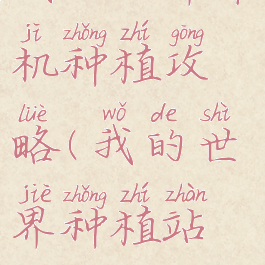 jī zhǒng zhí gōng
机种植攻
lüè wǒ de shì
略(我的世
jiè zhǒng zhí zhàn
界种植站